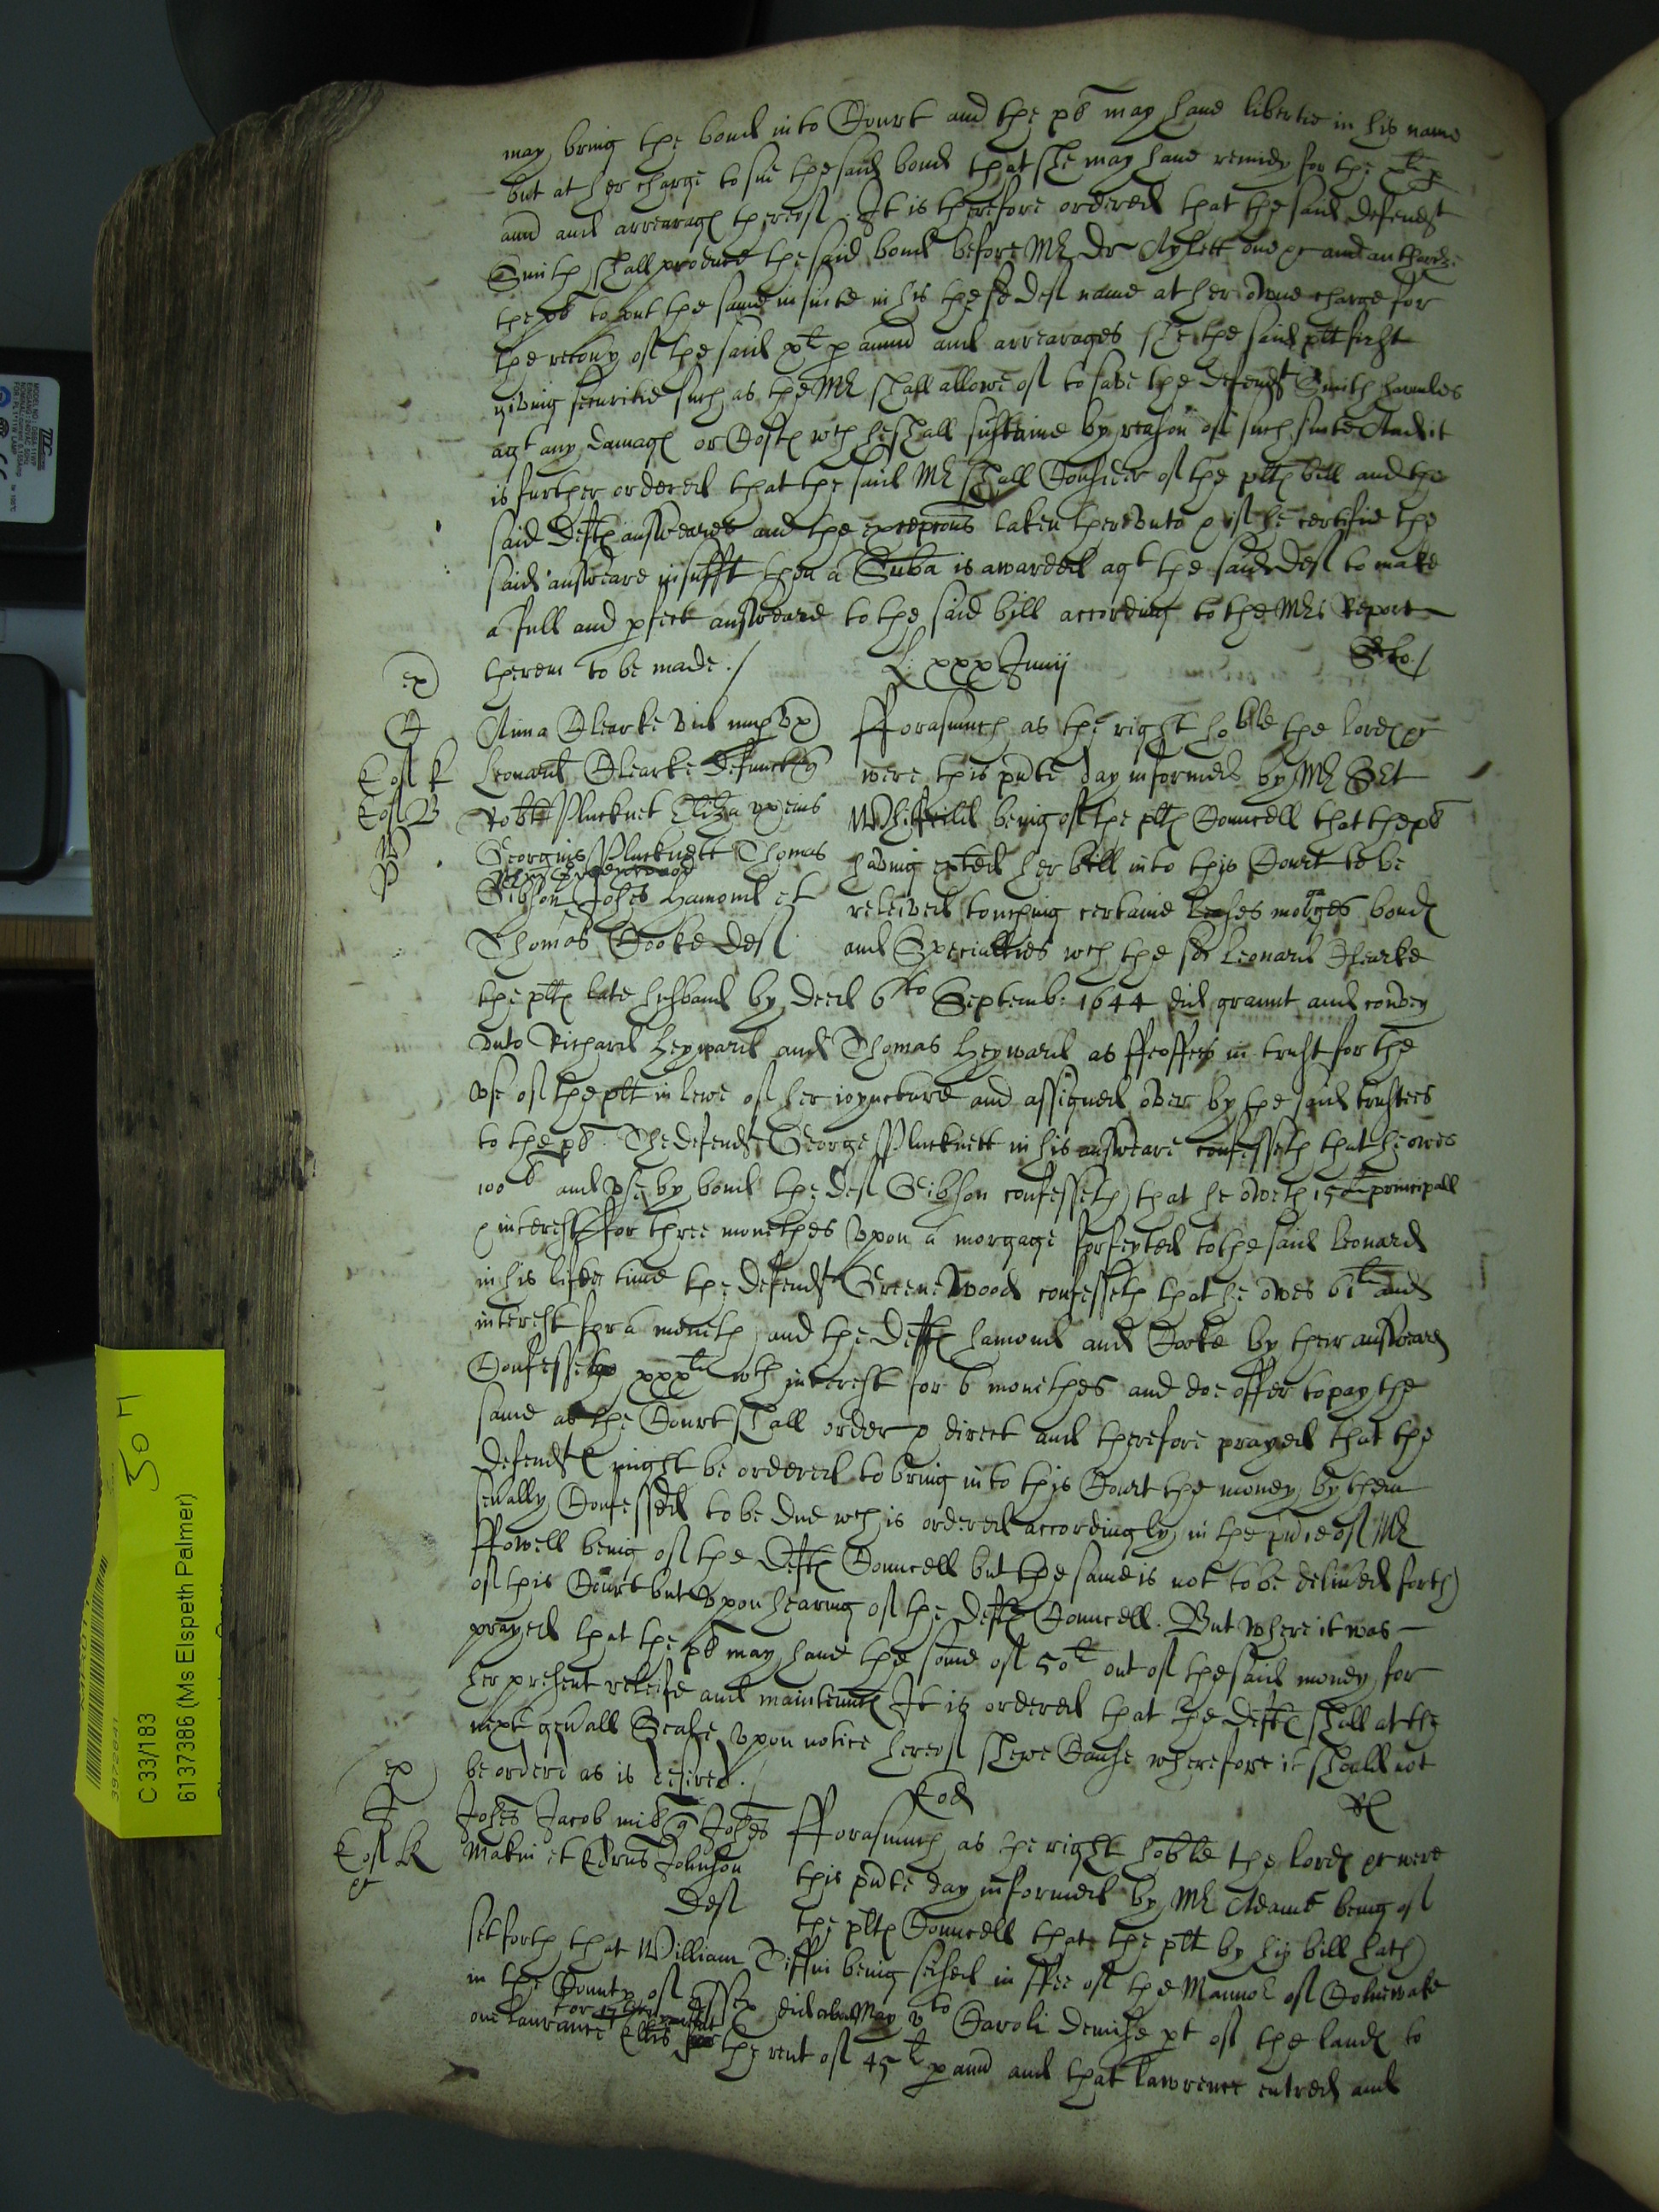 may bring the bond into Court and the plt may have libertie in his name
but at her charge to sue the said bond that she may have remedy for the xli p
ann and arrearages thereof. It is therefore ordered that the said defendt
Smith shall produce the said bond before Mr Dr Aylett one &c and authorize
the plt to put the same in suite in his the sd Def name at her owne charge for
the recovy of the said xli p annu and arrearages she the said plt first
giving securitie such as the Mr shall allowe of to save the defendt Smith harmles
agt any damages or Costs wch he shall susteine by reason of such suite And it
is further ordered that the said Mr shall Consider of the plts bill and the
said Defts answeares and the exceptions taken thereunto & if he certifie the
said answeare insufft then a Suba is awarded agt the said Def to make
a full and pfect answeare to the said bill according to the Mrs Report
therein to be made./ L: xxx Junij
ex)
Anna Clearke vid nup ux) fforasmuch as the right hoble the lords &c
Leonard Clearke defunct q were this pnte day informed by Mr Sgt
Robt Plucknet Eliza ux eius Whitfeild being of the plts Councell that the plt
Georgius Plucknett Thomas having exted her bill into this Court to be
Gibson Johes Hamond et releived touching certaine leases morges bonds
Thomas Cooke Def and Specialties wch the sd Leonard Clearke
the plts late husband by deed 6to Septemb: 1644 did graunt and convey
unto Richard Heyward and Thomas Heyward as ffeoffees in trust for the
use of the plt in lewe of her ioyncture and assigned over by the said trustees
to the plt. The defendt George Plucknett in his answeare confesseth that he owes
100li and use by bond the Def Gibson confesseth that he oweth 15li principall
& interest for three monethes upon a morgage forfeyted to the said Leonard
in his life time the defendt Greenewood confesseth that he owes 6li and
interest for a moneth and the Defts Hamond and Cooke by their answeares
Confesseth xxxli wth interest for 6 monethes and doe offer to pay the
same as the Court shall order & direct and therefore prayed that the
Defendts might be ordered to bring into this Court the money by them
sevally Confessed to be due wch is ordered accordingly in the pnce of Mr
ffowell being of the Defts Councell but the same is not to be delived forth
of this Court but upon hearing of the Defts Councell. But where it was
prayed that the plt may have the some of 50li out of the said money for
her present releife and maintennce It is ordered that the Defts shall at the
next genall Seale upon notice hereof shewe Cause wherefore it should not
be orderd as is desired./ Eod
ex)
Johes Jacob mil q Johes fforasmuch as the right hoble the lords &c were
Makin et Edrus Johnson this pnte day informed by Mr Adams being of
Def the plts Councell that the plt by his bill hath
set forth that William Tiffin being seised in ffee of the Mannor of Colnewake
in the County of Essex did about May vto Caroli demise pt of the lands to
one Laurance Ellis the rent of 45li p ann and that Lawrence entred and
C 33/183
6137386 (Ms Elspeth Palmer)